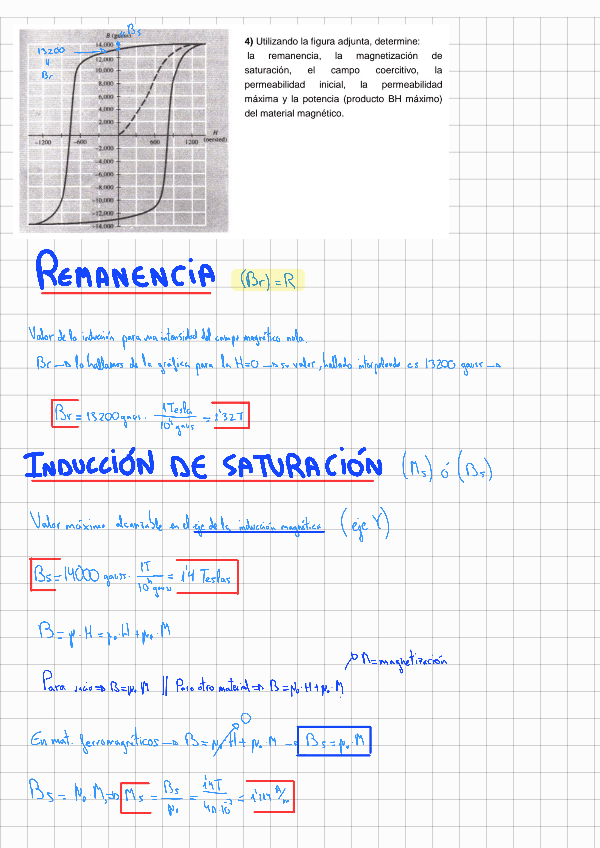 B (gauss)
Bs
13200
Br
14,000
12,000
10,000
8,000
6,000
4,000
2,000
H
(oersted)
-1200 -600 600 1200
-2,000
-4,000
-6,000
-8,000
-10,000
-12,000
-14,000
4) Utilizando la figura adjunta, determine:
la remanencia, la magnetización de
saturación, el campo coercitivo, la
permeabilidad inicial, la permeabilidad
máxima y la potencia (producto BH máximo)
del material magnético.
REMANENCIA (Br) = R
Valor de la inducción para una intensidad del campo magnético nula.
Br → lo hallamos de la gráfica para la H=0 → su valor, hallado interpolando es 13200 gauss →
Br = 13200 gauss · 1 Tesla / 10⁴ gauss = 1'32 T
INDUCCIÓN DE SATURACIÓN (Ms) ó (Bs)
Valor máximo alcanzable en el eje de la inducción magnética (eje Y)
Bs = 14000 gauss · 1T / 10⁴ gauss = 1'4 Teslas
B = μ · H = μ₀ · H + μ₀ · M
M = magnetización
Para vacío ⇒ B = μ₀ H || Para otro material ⇒ B = μ₀ · H + μ₀ · M
En mat. ferromagnéticos → B = μ₀ H + μ₀ · M → Bs = μ₀ · M
0
Bs = μ₀ Ms ⇒ Ms = Bs / μ₀ = 1'4T / 4π·10⁻⁷ =